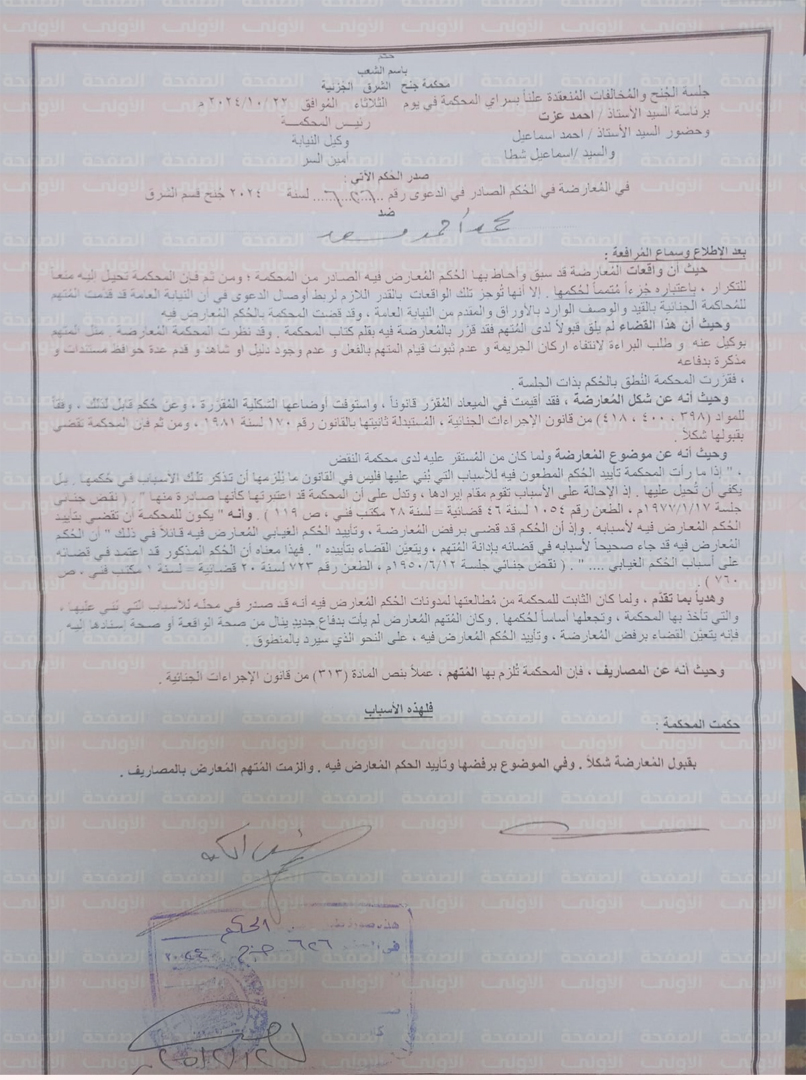 حكم
باسم الشعب
محكمة جنح الشرق الجزئية
جلسة الجُنح والمُخالفات المُنعقدة علناً بسراي المحكمة في يوم الثلاثاء المُوافق ٢٠٢٤/١٠/٢٢ م
برئاسة السيد الأستاذ / احمد عزت رئيس المحكمـــة
وحضور السيد الأستاذ / احمد اسماعيل وكيل النيابة
والسيد /اسماعيل شطا أمين السر
صدر الحُكم الآتي :
في المُعارضة في الحُكم الصادر في الدعوى رقم لسنة ٢٠٢٤ جُنح قسم الشرق
ضد
محمد أحمد مسعد
بعد الإطلاع وسماع المُرافعة :
حيث أن واقعات المُعارضة قد سبق وأحاط بها الحُكم المُعارض فيه الصادر من المحكمة ؛ ومن ثم فإن المحكمة تحيل إليه منعاً
للتكرار ، باعتباره جُزءاً مُتمماً لحُكمها . إلا أنها تُوجز تلك الواقعات بالقدر اللازم لربط أوصال الدعوى في أن النيابة العامة قد قدمت المُتهم
للمُحاكمة الجنائية بالقيد والوصف الوارد بالأوراق والمقدم من النيابة العامة ، وقد قضت المحكمة بالحُكم المُعارض فيه
وحيث أن هذا القضاء لم يلق قبولاً لدى المُتهم فقد قرَّر بالمُعارضة فيه بقلم كتاب المحكمة . وقد نظرت المحكمة المُعارضة . مثل المتهم
بوكيل عنه و طلب البراءة لانتفاء اركان الجريمة و عدم ثبوت قيام المتهم بالفعل و عدم وجود دليل او شاهد و قدم عدة حوافظ مستندات و
مذكرة بدفاعه
، فقرَّرت المحكمة النُطق بالحُكم بذات الجلسة .
وحيث أنه عن شكل المُعارضة ، فقد أُقيمت في الميعاد المُقرَّر قانوناً ، واستوفت أوضاعها الشكلية المُقرَّرة ، وعن حُكم قابل لذلك ، وفقاً
للمواد (٣٩٨ ، ٤٠٠ ، ٤١٨) من قانون الإجراءات الجنائية ، المُستبدلة ثانيتها بالقانون رقم ١٧٠ لسنة ١٩٨١ ، ومن ثم فإن المحكمة تقضي
بقبولها شكلاً .
وحيث أنه عن موضوع المُعارضة ولما كان من المُستقر عليه لدى محكمة النقض
، " إذا ما رأت المحكمة تأييد الحُكم المطعون فيه للأسباب التي بُني عليها فليس في القانون ما يُلزمها أن تذكر تلك الأسباب في حُكمها . بل
يكفي أن تُحيل عليها . إذ الإحالة على الأسباب تقوم مقام إيرادها ، وتدل على أن المحكمة قد اعتبرتها كأنها صادرة منها " . ( نقض جنائي
جلسة ١٩٧٧/١/١٧م ، الطعن رقم ١٠٥٤ لسنة ٤٦ قضائية = لسنة ٢٨ مكتب فني ، ص ١١٩ ) . وأنه " يكون للمحكمة أن تقضي بتأييد
الحُكم المُعارض فيه لأسبابه . وإذ أن الحُكم قد قضى برفض المُعارضة ، وتأييد الحُكم الغيابي المُعارض فيه قائلاً في ذلك " أن الحُكم
المُعارض فيه قد جاء صحيحاً لأسبابه في قضائه بإدانة المُتهم ، ويتعيّن القضاء بتأييده " . فهذا معناه أن الحُكم المذكور قد اعتمد في قضائه
على أسباب الحُكم الغيابي .... " . ( نقض جنائي جلسة ١٩٥٠/٦/١٢م ، الطعن رقم ٧٢٣ لسنة ٢٠ قضائية = لسنة ١ مكتب فني ، ص
٧٦٠ ) .
وهدياً بما تقدَّم ، ولما كان الثابت للمحكمة من مُطالعتها لمدونات الحُكم المُعارض فيه أنه قد صدر في محله للأسباب التي بُني عليها ،
والتي تأخذ بها المحكمة ، وتجعلها أساساً لحُكمها . وكان المُتهم المُعارض لم يأت بدفاع جديد ينال من صحة الواقعة أو صحة إسنادها إليه
فإنه يتعيّن القضاء برفض المُعارضة ، وتأييد الحُكم المُعارض فيه ، على النحو الذي سيرد بالمنطوق .
وحيث أنه عن المصاريف ، فإن المحكمة تُلزم بها المُتهم ، عملاً بنص المادة (٣١٣) من قانون الإجراءات الجنائية .
فلهذه الأسباب
حكمت المحكمة :
بقبول المُعارضة شكلاً . وفي الموضوع برفضها وتأييد الحكم المُعارض فيه . وألزمت المُتهم المُعارض بالمصاريف .
الحكم
جنح
الصفحة الأولى